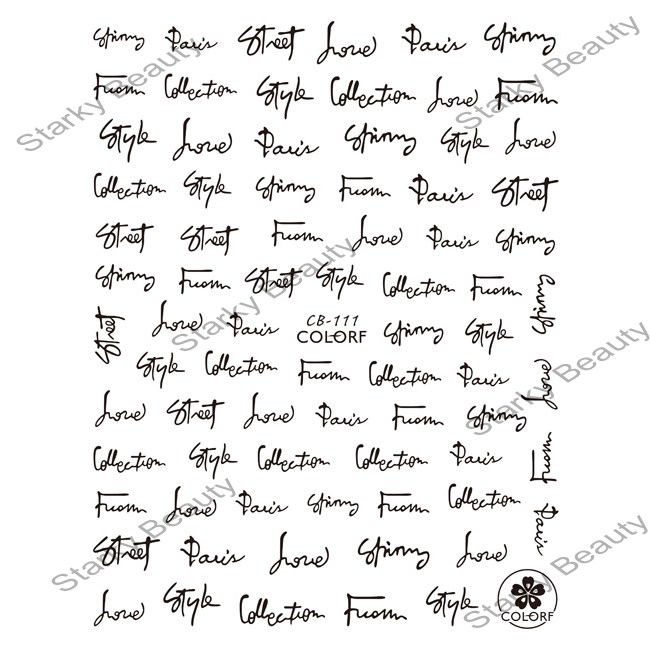 Spinny Paris Street Love Paris Spinny
From Collection Style Collection Love From
Style Love Paris Spinny Style Love
Collection Style Spinny From Paris Street
Street Street From Love Paris Spinny
Spinny From Street Style Collection From Spinny
Street Love Paris CB-111 COLORF Spinny Style
Style Collection From Collection Paris Love
Love Street Love Paris From Spinny
Collection Style Collection Collection Paris From
From Love Paris Spinny From Collection Paris
Street Paris Love Spinny Love
Love Style Collection From Style COLORF
Starky Beauty
Starky Beauty
Starky Beauty
Starky Beauty
Starky Beauty
Starky Beauty